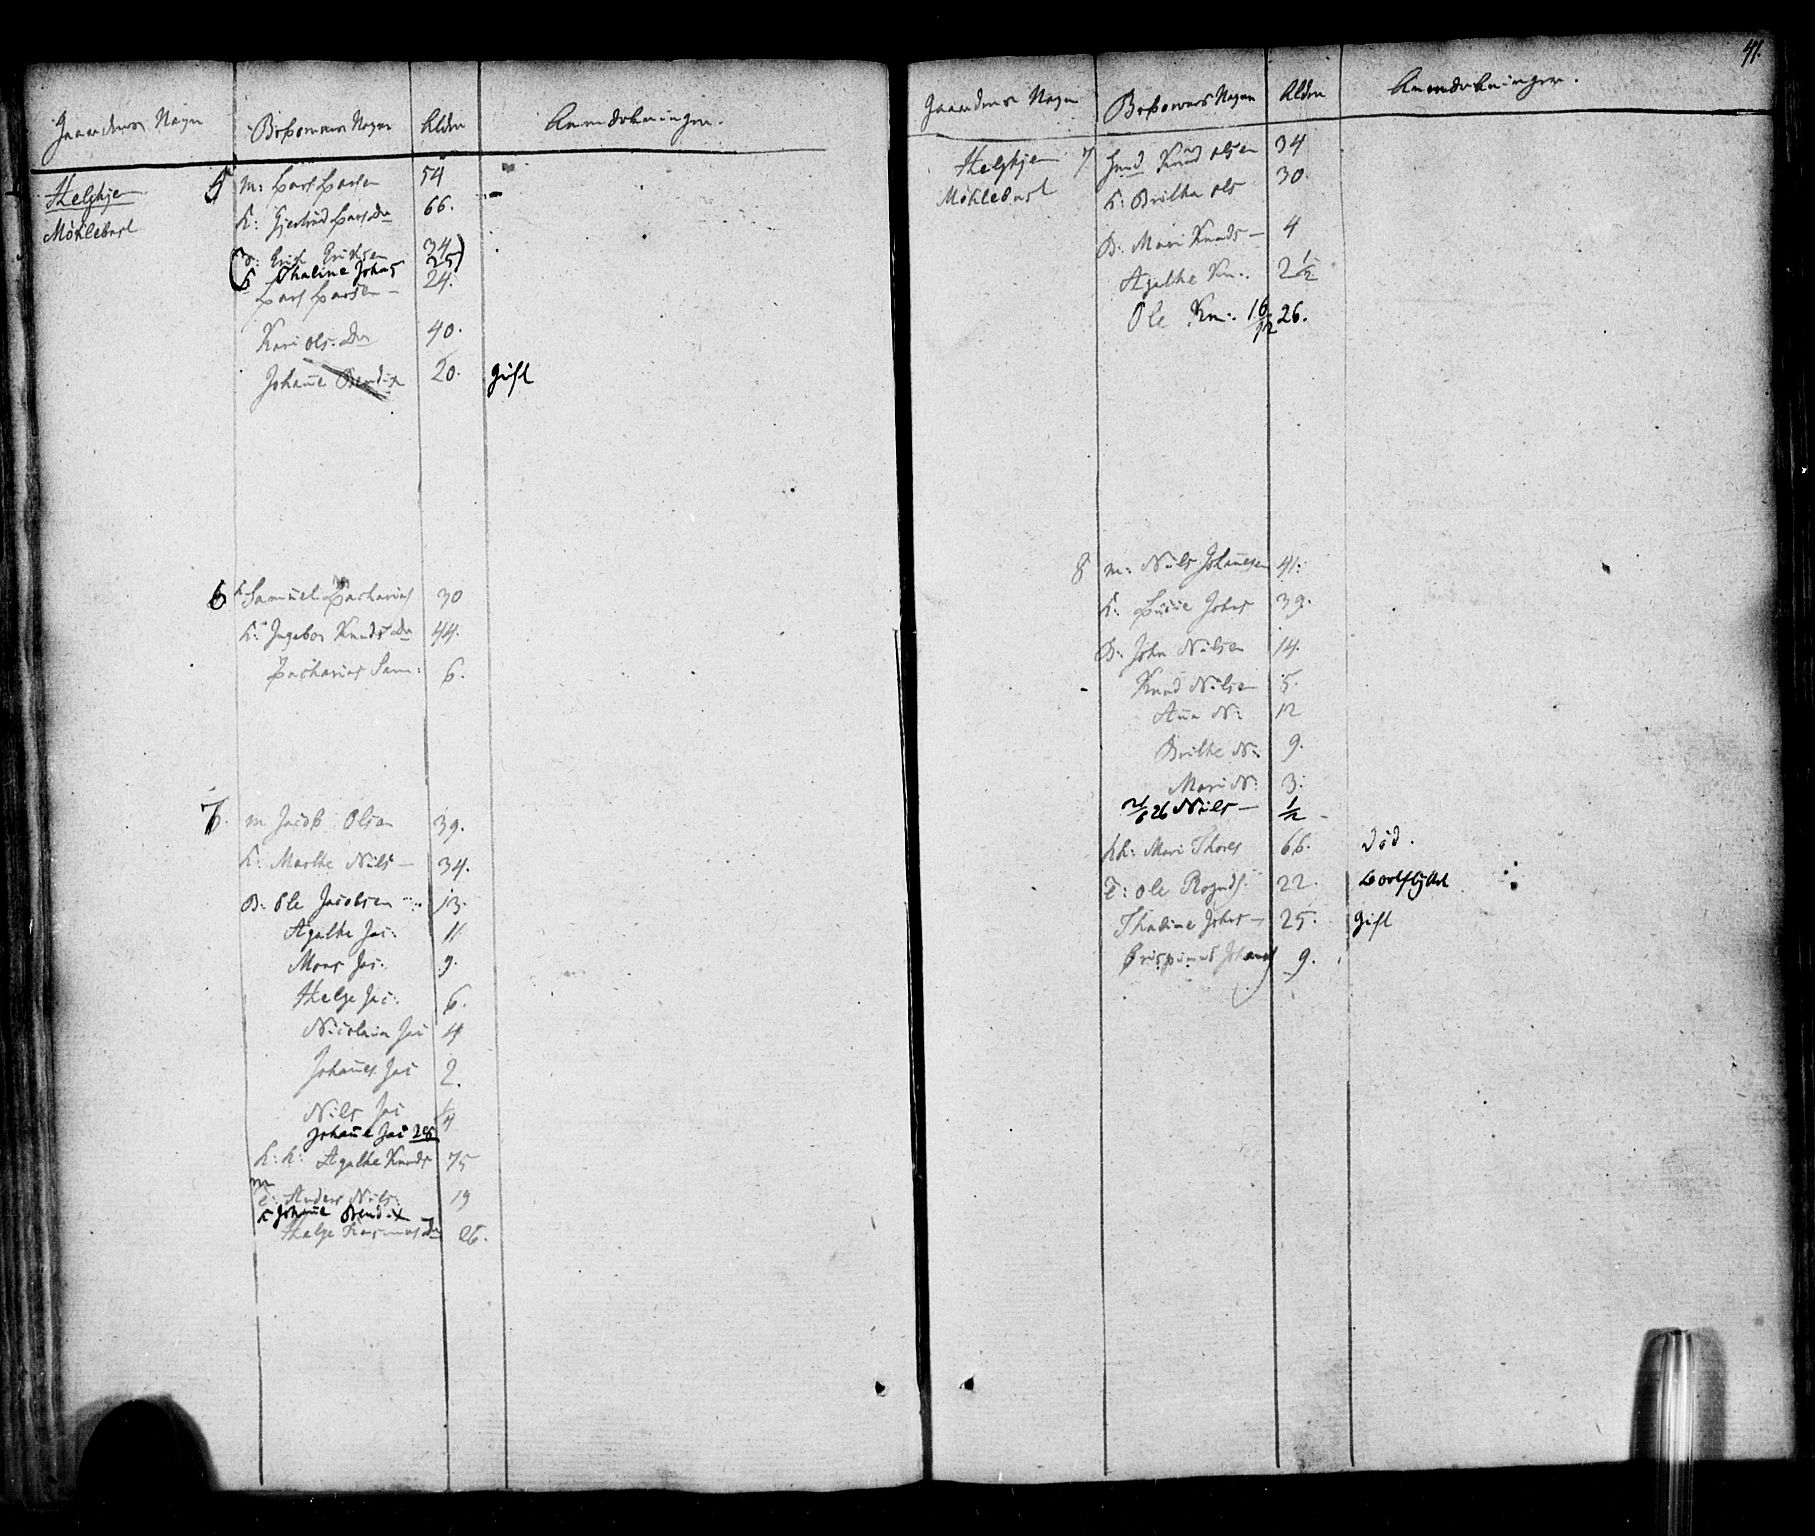 Gaardenes Nagn Beboernes Nagn Alder Anmærkninger.
Helghjem 5 m: Lars Larsen 54
Møhlebust k: Gjertrud Larsdr 66.
(B: Erich Erichsen 34)
(k Thaline Johas 25)
Lars Larsen 24.
Kari Ols. Dr 40.
Johañe Bendix 20. gift
6 Samuel Zacharias 30
k: Ingebor Knuds Dr 44.
Zacharias Sam: 6.
7. m Jacob Olsen 39.
k: Marthe Nils 34.
B: Ole Jacobsen 13.
Agathe Jac: 11
Mons Jac: 9.
Helge Jac: 6.
Nicolai Jac 4
Johañes Jac 2.
Nils Jac 1/4
Johañe Jac 28
k: k: Agathe Knuds 75
m
t: Anders Nils: 19
k Johañe Bendix
Helge Rasmus Dr 26.
41.
Gaardenes Nagn Beboernes Nagn Alder Anmærkninger.
Helghjem 7 Knud Olsen 34
Møhlebust k: Brithe Ols 30.
B: Mari Knuds 4
Agathe Kn: 2 1/2
Ole Kn: 16/12 26.
8 m: Nils Johañesen 41.
k: Johns 39.
B: John Nilsen 14.
Knud Nilsen 5.
Aña N: 12
Brithe N: 9.
Mari N: 3.
21/6 26 Nils 1/2
kk: Mari Thores 66. Død.
t: Ole Rognds: 22. bortflyttet
Thaline Johns 25. gift
Crispinus Johans 9.